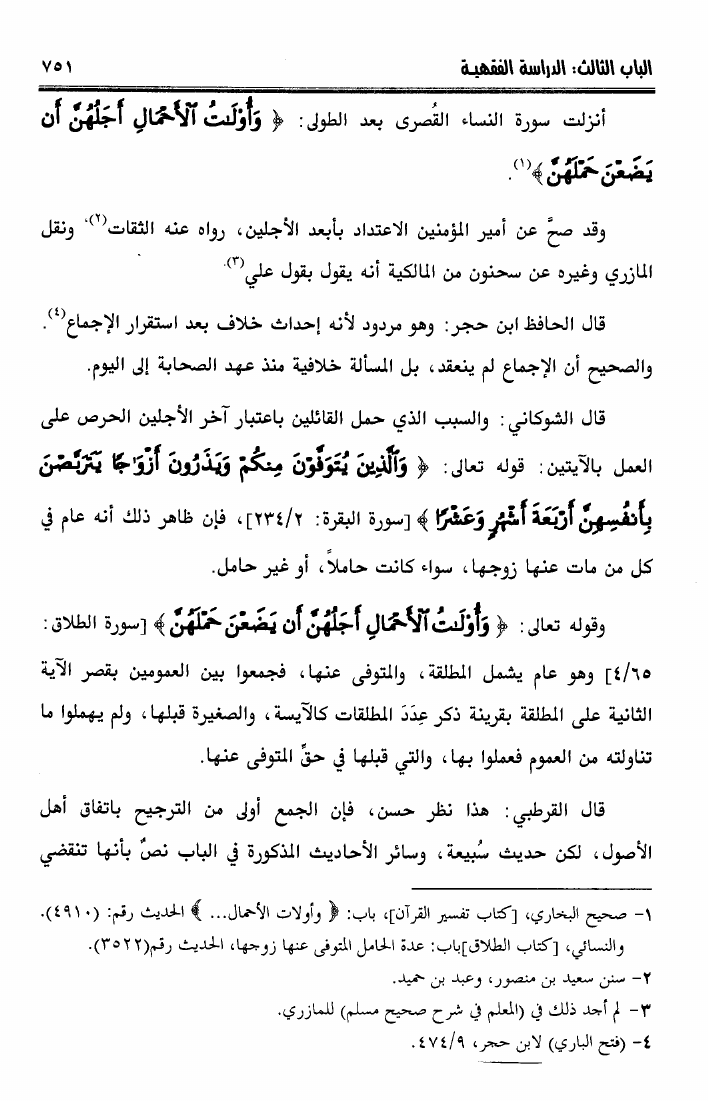 الباب الثالث: الدراسة الفقهية ٧٥١
أنزلت سورة النساء القُصرى بعد الطولى: ﴿ وَأُوْلَـٰتُ ٱلْأَحْمَالِ أَجَلُهُنَّ أَن
يَضَعْنَ حَمْلَهُنَّ﴾(١).
وقد صحَّ عن أمير المؤمنين الاعتداد بأبعد الأجلين، رواه عنه الثقات(٢). ونقل
المازري وغيره عن سحنون من المالكية أنه يقول بقول علي(٣).
قال الحافظ ابن حجر: وهو مردود لأنه إحداث خلاف بعد استقرار الإجماع(٤).
والصحيح أن الإجماع لم ينعقد، بل المسألة خلافية منذ عهد الصحابة إلى اليوم.
قال الشوكاني: والسبب الذي حمل القائلين باعتبار آخر الأجلين الحرص على
العمل بالآيتين: قوله تعالى: ﴿ وَٱلَّذِينَ يُتَوَفَّوْنَ مِنكُمْ وَيَذَرُونَ أَزْوَٰجًا يَتَرَبَّصْنَ
بِأَنفُسِهِنَّ أَرْبَعَةَ أَشْهُرٍ وَعَشْرًا ﴾ [سورة البقرة: ٢٣٤/٢]، فإن ظاهر ذلك أنه عام في
كل من مات عنها زوجها، سواء كانت حاملاً، أو غير حامل.
وقوله تعالى: ﴿ وَأُوْلَـٰتُ ٱلْأَحْمَالِ أَجَلُهُنَّ أَن يَضَعْنَ حَمْلَهُنَّ ﴾ [سورة الطلاق:
٤/٦٥] وهو عام يشمل المطلقة، والمتوفى عنها، فجمعوا بين العمومين بقصر الآية
الثانية على المطلقة بقرينة ذكر عِدَدَ المطلقات كالآيسة، والصغيرة قبلها، ولم يهملوا ما
تناولته من العموم فعملوا بها، والتي قبلها في حقِّ المتوفى عنها.
قال القرطبي: هذا نظر حسن، فإن الجمع أولى من الترجيح باتفاق أهل
الأصول، لكن حديث سُبيعة، وسائر الأحاديث المذكورة في الباب نصٌ بأنها تنقضي
١- صحيح البخاري، [كتاب تفسير القرآن]، باب: ﴿ وأولات الأحمال... ﴾ الحديث رقم: (٤٩١٠).
والنسائي، [كتاب الطلاق]باب: عدة الحامل المتوفى عنها زوجها، الحديث رقم(٣٥٢٢).
٢- سنن سعيد بن منصور، وعبد بن حميد.
٣- لم أجد ذلك في (المعلم في شرح صحيح مسلم) للمازري.
٤- (فتح الباري) لابن حجر، ٤٧٤/٩.